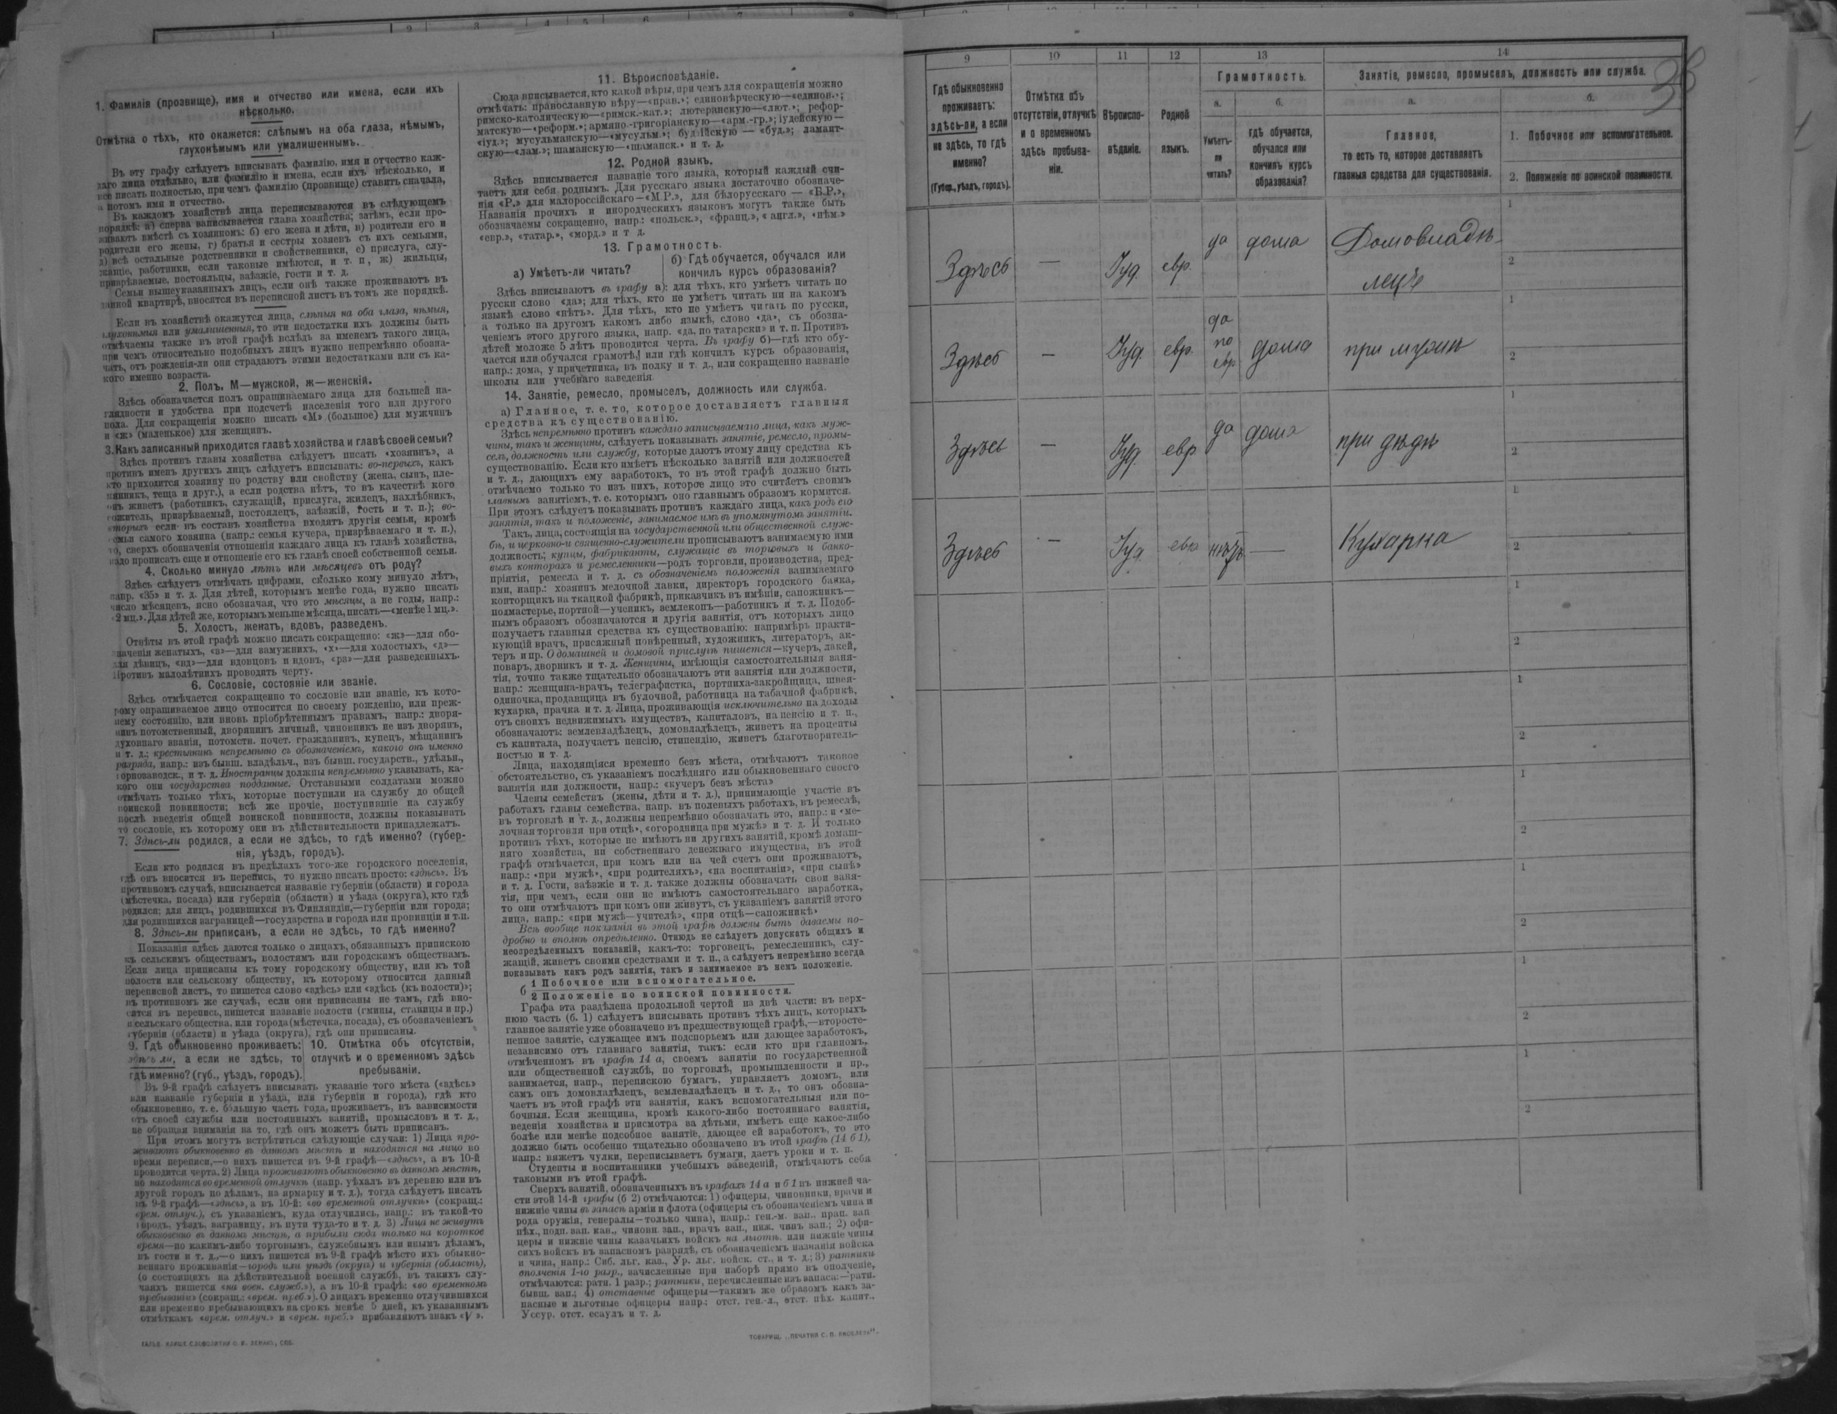 1. Фамилія (прозвище), имя и отчество или имена, если ихъ
нѣсколько.
Отмѣтка о тѣхъ, кто окажется: слѣпымъ на оба глаза, нѣмымъ,
глухонѣмымъ или умалишеннымъ.
Въ эту графу слѣдуетъ вписывать фамилію, имя и отчество каж-
даго лица отдѣльно, или фамилію и имена, если ихъ нѣсколько, и
все писать полностью, при чемъ фамилію (прозвище) ставить сначала,
а потомъ имя и отчество.
Въ каждомъ хозяйствѣ лица переписываются въ слѣдующемъ
порядкѣ: а) сперва записывается глава хозяйства; затѣмъ, если про-
живаютъ вмѣстѣ съ хозяиномъ: б) его жена и дѣти, в) родители его и
родители его жены, г) братья и сестры хозяевъ съ ихъ семьями,
д) всѣ остальные родственники и свойственники, е) прислуга, слу-
жащіе, работники, если таковые имѣются, и т. п, ж) жильцы,
призрѣваемые, постояльцы, заѣзжіе, гости и т. д.
Семьи вышеуказанныхъ лицъ, если онѣ также проживаютъ въ
данной квартирѣ, вносятся въ переписной листъ въ томъ же порядкѣ.
Если въ хозяйствѣ окажутся лица, слѣпыя на оба глаза, нѣмыя,
глухонѣмыя или умалишенныя, то эти недостатки ихъ должны быть
отмѣчаемы также въ этой графѣ вслѣдъ за именемъ такого лица,
при чемъ относительно подобныхъ лицъ нужно непремѣнно обозна-
чать, отъ рожденія-ли они страдаютъ этими недостатками или съ ка-
кого именно возраста.
2. Полъ. М—мужской, ж—женскій.
Здѣсь обозначается полъ опрашиваемаго лица для большей на-
глядности и удобства при подсчетѣ населенія того или другого
пола. Для сокращенія можно писать «М» (большое) для мужчинъ
и «ж» (маленькое) для женщинъ.
3. Какъ записанный приходится главѣ хозяйства и главѣ своей семьи?
Здѣсь противъ главы хозяйства слѣдуетъ писать «хозяинъ», а
противъ именъ другихъ лицъ слѣдуетъ вписывать: во-первыхъ, какъ
кто приходится хозяину по родству или свойству (жена, сынъ, пле-
мянникъ, теща и друг.), а если родства нѣтъ, то въ качествѣ кого
онъ живетъ (работникъ, служащій, прислуга, жилецъ, нахлѣбникъ,
сожитель, призрѣваемый, постоялецъ, заѣзжій, гость и т. п.); во-
вторыхъ если въ составъ хозяйства входятъ другія семьи, кромѣ
семьи самого хозяина (напр: семья кучера, призрѣваемаго и т. п.),
то, сверхъ обозначенія отношенія каждаго лица къ главѣ хозяйства,
надо прописать еще и отношеніе его къ главѣ своей собственной семьи.
4. Сколько минуло лѣтъ или мѣсяцевъ отъ роду?
Здѣсь слѣдуетъ отмѣчать цифрами, сколько кому минуло лѣтъ,
напр. «35» и т. д. Для дѣтей, которымъ менѣе года, нужно писать
число мѣсяцевъ, ясно обозначая, что это мѣсяцы, а не годы, напр.:
«2 мц.». Для дѣтей же, которымъ меньше мѣсяца, писать—«менѣе 1 мц.».
5. Холостъ, женатъ, вдовъ, разведенъ.
Отвѣты въ этой графѣ можно писать сокращенно: «ж»—для обо-
значенія женатыхъ, «з»—для замужнихъ, «х»—для холостыхъ, «д»—
для дѣвицъ, «вд»—для вдовцовъ и вдовъ, «рз»—для разведенныхъ.
Противъ малолѣтнихъ проводить черту.
6. Сословіе, состояніе или званіе.
Здѣсь отмѣчается сокращенно то сословіе или званіе, къ кото-
рому опрашиваемое лицо относится по своему рожденію, или преж-
нему состоянію, или вновь пріобрѣтеннымъ правамъ, напр.: дворя-
нинъ потомственный, дворянинъ личный, чиновникъ не изъ дворянъ,
духовнаго званія, потомств. почет. гражданинъ, купецъ, мѣщанинъ
и т. д.; крестьянинъ непремѣнно съ обозначеніемъ, какого онъ именно
разряда, напр.: изъ бывш. владѣльч., изъ бывш. государств., удѣльн.,
горнозаводск., и т. д. Иностранцы должны непремѣнно указывать, ка-
кого они государства подданные. Отставными солдатами можно
отмѣчать только тѣхъ, которые поступили на службу до общей
воинской повинности; всѣ же прочіе, поступившіе на службу
послѣ введенія общей воинской повинности, должны показывать
то сословіе, къ которому они въ дѣйствительности принадлежатъ.
7. Здѣсь-ли родился, а если не здѣсь, то гдѣ именно? (губер-
нія, уѣздъ, городъ).
Если кто родился въ предѣлахъ того-же городского поселенія,
гдѣ онъ вносится въ перепись, то нужно писать просто: «здѣсь». Въ
противномъ случаѣ, вписывается названіе губерніи (области) и города
(мѣстечка, посада) или губерніи (области) и уѣзда (округа), кто гдѣ
родился; для лицъ, родившихся въ Финляндіи,—губерніи или города;
для родившихся заграницей—государства и города или провинціи и т.п.
8. Здѣсь-ли приписанъ, а если не здѣсь, то гдѣ именно?
Показанія здѣсь даются только о лицахъ, обязанныхъ припискою
къ сельскимъ обществамъ, волостямъ или городскимъ обществамъ.
Если лица приписаны къ тому городскому обществу, или къ той
волости или сельскому обществу, къ которому относится данный
переписной листъ, то пишется слово «здѣсь» или «здѣсь (къ волости)»;
въ противномъ же случаѣ, если они приписаны не тамъ, гдѣ вно-
сятся въ перепись, пишется названіе волости (гмины, станицы и пр.)
и сельскаго общества, или города (мѣстечка, посада), съ обозначеніемъ
губерніи (области) и уѣзда (округа), гдѣ они приписаны.
9. Гдѣ обыкновенно проживаетъ:
здѣсь ли, а если не здѣсь, то
гдѣ именно? (губ., уѣздъ, городъ).
10. Отмѣтка объ отсутствіи,
отлучкѣ и о временномъ здѣсь
пребываніи.
Въ 9-й графѣ слѣдуетъ вписывать указаніе того мѣста («здѣсь»
или названіе губерніи и уѣзда, или губерніи и города), гдѣ кто
обыкновенно, т. е. большую часть года, проживаетъ, въ зависимости
отъ своей службы или постоянныхъ занятій, промысловъ и т. д.,
не обращая вниманія на то, гдѣ онъ можетъ быть приписанъ.
При этомъ могутъ встрѣтиться слѣдующіе случаи: 1) Лица про-
живаютъ обыкновенно въ данномъ мѣстѣ и находятся на лицо во
время переписи,—о нихъ пишется въ 9-й графѣ—«здѣсь», а въ 10-й
проводится черта. 2) Лица проживаютъ обыкновенно въ данномъ мѣстѣ,
но находятся во временной отлучкѣ (напр. уѣхалъ въ деревню или въ
другой городъ по дѣламъ, на ярмарку и т. д.), тогда слѣдуетъ писать
въ 9-й графѣ—«здѣсь», а въ 10-й: «во временной отлучкѣ» (сокращ.:
врем. отлуч.), съ указаніемъ, куда отлучились, напр.: въ такой-то
городъ, уѣздъ, заграницу, въ пути туда-то и т. д. 3) Лица не живутъ
обыкновенно въ данномъ мѣстѣ, а прибыли сюда только на короткое
время—по какимъ-либо торговымъ, служебнымъ или инымъ дѣламъ,
въ гости и т. д.,—о нихъ пишется въ 9-й графѣ мѣсто ихъ обыкно-
веннаго проживанія—городъ или уѣздъ (округъ) и губернія (область),
(о состоящихъ на дѣйствительной военной службѣ, въ такихъ слу-
чаяхъ пишется «на воен. служб.»), а въ 10-й графѣ: «во временномъ
пребываніи» (сокращ.: «врем. преб.»). О лицахъ временно отлучившихся
или временно пребывающихъ на срокъ менѣе 5 дней, къ указаннымъ
отмѣткамъ «врем. отлуч.» и «врем. преб.» прибавляютъ знакъ «V».
11. Вѣроисповѣданіе.
Сюда вписывается, кто какой вѣры, при чемъ для сокращенія можно
отмѣчать: православную вѣру—«прав.»; единовѣрческую—«единов.»;
римско-католическую—«римск.-кат.»; лютеранскую—«лют.»; рефор-
матскую—«реформ.»; армяно-григоріанскую—«арм.-гр.»; іудейскую—
«іуд.»; мусульманскую—«мусульм.»; буддійскую—«буд.»; ламаит-
скую—«лам.»; шаманскую—«шаманск.» и т. д.
12. Родной языкъ.
Здѣсь вписывается названіе того языка, который каждый счи-
таетъ для себя роднымъ. Для русскаго языка достаточно обозначе-
нія «Р.» для малороссійскаго—«М Р.», для бѣлорусскаго — «Б.Р.»,
Названія прочихъ и инородческихъ языковъ могутъ также быть
обозначаемы сокращенно, напр.: «польск.», «франц.», «англ.», «нѣм.»
«евр.», «татар.», «морд.» и т д.
13. Грамотность.
а) Умѣетъ-ли читать?
б) Гдѣ обучается, обучался или
кончилъ курсъ образованія?
Здѣсь вписываютъ въ графу а): для тѣхъ, кто умѣетъ читать по
русски слово «да»; для тѣхъ, кто не умѣетъ читать ни на какомъ
языкѣ слово «нѣтъ». Для тѣхъ, кто не умѣетъ читать по русски,
а только на другомъ какомъ либо языкѣ, слово «да», съ обозна-
ченіемъ этого другого языка, напр. «да, по татарски» и т. п. Противъ
дѣтей моложе 5 лѣтъ проводится черта. Въ графу б)—гдѣ кто обу-
чается или обучался грамотѣ, или гдѣ кончилъ курсъ образованія,
напр.: дома, у причетника, въ полку и т. д., или сокращенно названіе
школы или учебнаго заведенія.
14. Занятіе, ремесло, промыселъ, должность или служба.
а) Главное, т. е. то, которое доставляетъ главныя
средства къ существованію.
Здѣсь непремѣнно противъ каждаго записываемаго лица, какъ муж-
чины, такъ и женщины, слѣдуетъ показывать занятіе, ремесло, промы-
селъ, должность или службу, которые даютъ этому лицу средства къ
существованію. Если кто имѣетъ нѣсколько занятій или должностей
и т. д., дающихъ ему заработокъ, то въ этой графѣ должно быть
отмѣчаемо только то изъ нихъ, которое лицо это считаетъ своимъ
главнымъ занятіемъ, т. е. которымъ оно главнымъ образомъ кормится.
При этомъ слѣдуетъ показывать противъ каждаго лица, какъ родъ его
занятія, такъ и положеніе, занимаемое имъ въ упомянутомъ занятіи.
Такъ, лица, состоящія на государственной или общественной служ-
бѣ, и церковно-и священно-служители прописываютъ занимаемую ими
должность; купцы, фабриканты, служащіе въ торговыхъ и банко-
выхъ конторахъ и ремесленники—родъ торговли, производства, пред-
пріятія, ремесла и т. д. съ обозначеніемъ положенія занимаемаго
ими, напр.: хозяинъ мелочной лавки, директоръ городского банка,
конторщикъ на ткацкой фабрикѣ, приказчикъ въ имѣніи, сапожникъ—
подмастерье, портной—ученикъ, землекопъ—работникъ и т. д. Подоб-
нымъ образомъ обозначаются и другія занятія, отъ которыхъ лицо
получаетъ главныя средства къ существованію: напримѣръ практи-
кующій врачъ, присяжный повѣренный, художникъ, литераторъ, ак-
теръ и пр. О домашней и домовой прислугѣ пишется—кучеръ, лакей,
поваръ, дворникъ и т. д. Женщины, имѣющія самостоятельныя заня-
тія, точно также тщательно обозначаютъ эти занятія или должности,
напр.: женщина-врачъ, телеграфистка, портниха-закройщица, швея-
одиночка, продавщица въ булочной, работница на табачной фабрикѣ,
кухарка, прачка и т. д. Лица, проживающія исключительно на доходы
отъ своихъ недвижимыхъ имуществъ, капиталовъ, на пенсію и т. п.,
обозначаютъ: землевладѣлецъ, домовладѣлецъ, живетъ на проценты
съ капитала, получаетъ пенсію, стипендію, живетъ благотворитель-
ностью и т. д.
Лица, находящіяся временно безъ мѣста, отмѣчаютъ таковое
обстоятельство, съ указаніемъ послѣдняго или обыкновеннаго своего
занятія или должности, напр.: «кучеръ безъ мѣста»
Члены семействъ (жены, дѣти и т. д.), принимающіе участіе въ
работахъ главы семейства, напр. въ полевыхъ работахъ, въ ремеслѣ,
въ торговлѣ и т. д., должны непремѣнно обозначать это, напр.: «ме-
лочная торговля при отцѣ», «огородница при мужѣ» и т. д. И только
противъ тѣхъ, которые не имѣютъ ни другихъ занятій, кромѣ домаш-
няго хозяйства, ни собственнаго денежнаго имущества, въ этой
графѣ отмѣчается, при комъ или на чей счетъ они проживаютъ,
напр.: «при мужѣ», «при родителяхъ», «на воспитаніи», «при сынѣ»
и т. д. Гости, заѣзжіе и т. д. также должны обозначать свои заня-
тія, при чемъ, если они не имѣютъ самостоятельнаго заработка,
то они отмѣчаютъ при комъ они живутъ, съ указаніемъ занятій этого
лица, напр.: «при мужѣ—учителѣ», «при отцѣ—сапожникѣ»
Всѣ вообще показанія въ этой графѣ должны быть даваемы по-
дробно и вполнѣ опредѣленно. Отнюдь не слѣдуетъ допускать общихъ и
неопредѣленныхъ показаній, какъ-то: торговецъ, ремесленникъ, слу-
жащій, живетъ своими средствами и т. п., а слѣдуетъ непремѣнно всегда
показывать какъ родъ занятія, такъ и занимаемое въ немъ положеніе.
б 1 Побочное или вспомогательное.
2 Положеніе по воинской повинности.
Графа эта раздѣлена продольной чертой на двѣ части: въ верх-
нюю часть (б. 1) слѣдуетъ вписывать противъ тѣхъ лицъ, которыхъ
главное занятіе уже обозначено въ предшествующей графѣ,—второсте-
пенное занятіе, служащее имъ подспорьемъ или дающее заработокъ,
независимо отъ главнаго занятія, такъ: если кто при главномъ,
отмѣченномъ въ графѣ 14 а, своемъ занятіи по государственной
или общественной службѣ, по торговлѣ, промышленности и пр.,
занимается, напр., перепискою бумагъ, управляетъ домомъ, или
самъ онъ домовладѣлецъ, землевладѣлецъ и т. д., то онъ обозна-
чаетъ въ этой графѣ эти занятія, какъ вспомогательныя или по-
бочныя. Если женщина, кромѣ какого-либо постояннаго занятія,
веденія хозяйства и присмотра за дѣтьми, имѣетъ еще какое-либо
болѣе или менѣе подсобное занятіе, дающее ей заработокъ, то это
должно быть особенно тщательно обозначено въ этой графѣ (14 б 1),
напр.: вяжетъ чулки, переписываетъ бумаги, даетъ уроки и т. п.
Студенты и воспитанники учебныхъ заведеній, отмѣчаютъ себя
таковыми въ этой графѣ.
Сверхъ занятій, обозначенныхъ въ графахъ 14 а и б 1 въ нижней ча-
сти этой 14-й графы (б 2) отмѣчаются: 1) офицеры, чиновники, врачи и
нижніе чины въ запасѣ арміи и флота (офицеры съ обозначеніемъ чина и
рода оружія, генералы—только чина), напр.: ген.-м. зап., прап. зап
пѣх., подп. зап. кав., чиновн. зап., врачъ зап., ниж. чинъ зап.; 2) офи-
церы и нижніе чины казачьихъ войскъ на льготѣ. или нижніе чины
сихъ войскъ въ запасномъ разрядѣ, съ обозначеніемъ названія войска
и чина, напр.: Сиб. льг. каз., Ур. льг. войск. ст., и т. д.; 3) ратники
ополченія 1-го разр., зачисленные при наборѣ прямо въ ополченіе,
отмѣчаются: ратн. 1 разр.; ратники, перечисленные изъ запаса:—ратн.
бывш. зап.; 4) отставные офицеры—такимъ же образомъ какъ за-
пасные и льготные офицеры напр.: отст. ген.-л., отст. пѣх. капит.,
Уссур. отст. есаулъ и т. д.
9 10 11 12 13 14
Гдѣ обыкновенно
проживаетъ:
здѣсь-ли, а если
не здѣсь, то гдѣ
именно?
(Губер., уѣздъ, городъ).
Отмѣтка объ
отсутствіи, отлучкѣ
и о временномъ
здѣсь пребыва-
ніи.
Вѣроиспо-
вѣданіе.
Родной
языкъ.
Грамотность.
а.
Умѣетъ-
ли
читать?
б.
гдѣ обучается,
обучался или
кончилъ курсъ
образованія?
Занятіе, ремесло, промыселъ, должность или служба.
а.
Главное,
то есть то, которое доставляетъ
главныя средства для существованія.
б.
1. Побочное или вспомогательное.
2. Положеніе по воинской повинности.
Здѣсь — Іуд. евр. да дома Домовладѣ-
лецъ
1
2
Здѣсь — Іуд. евр. да по евр дома при мужѣ
1
2
Здѣсь — Іуд. евр да дома при дѣдѣ
1
2
Здѣсь — Іуд. евр нѣтъ — Кухарка
1
2
1
2
1
2
1
2
1
2
1
2
1
2